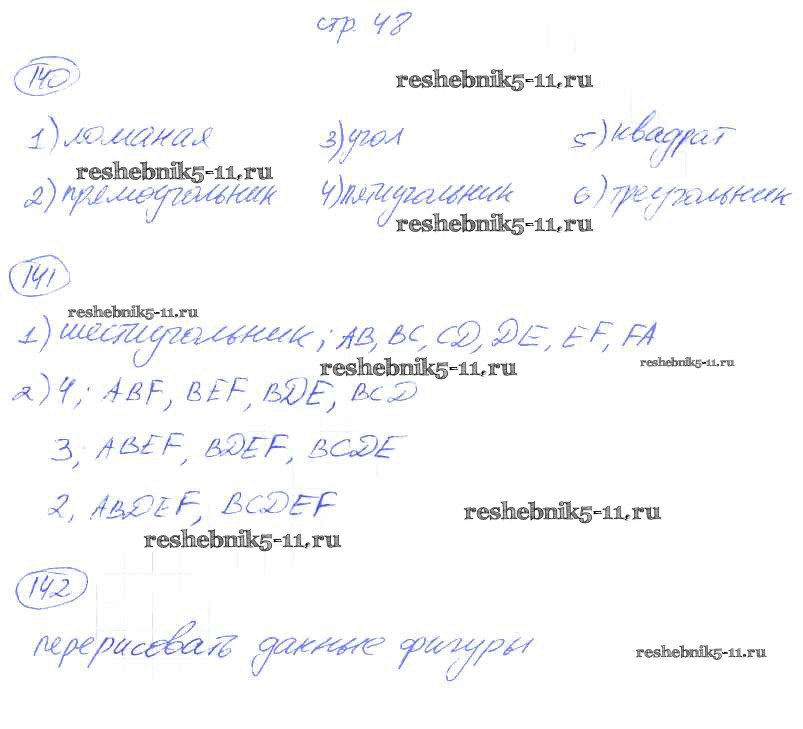 стр. 48
140
reshebnik5-11.ru
1) ломаная 3) угол 5) квадрат
reshebnik5-11.ru
2) прямоугольник 4) пятиугольник 6) треугольник
reshebnik5-11.ru
141
reshebnik5-11.ru
1) шестиугольник; AB, BC, CD, DE, EF, FA
reshebnik5-11.ru reshebnik5-11.ru
2) 4; ABF, BEF, BDE, BCD
3; ABEF, BDEF, BCDE
2, ABDEF, BCDEF
reshebnik5-11.ru
reshebnik5-11.ru
142
перерисовать данные фигуры
reshebnik5-11.ru